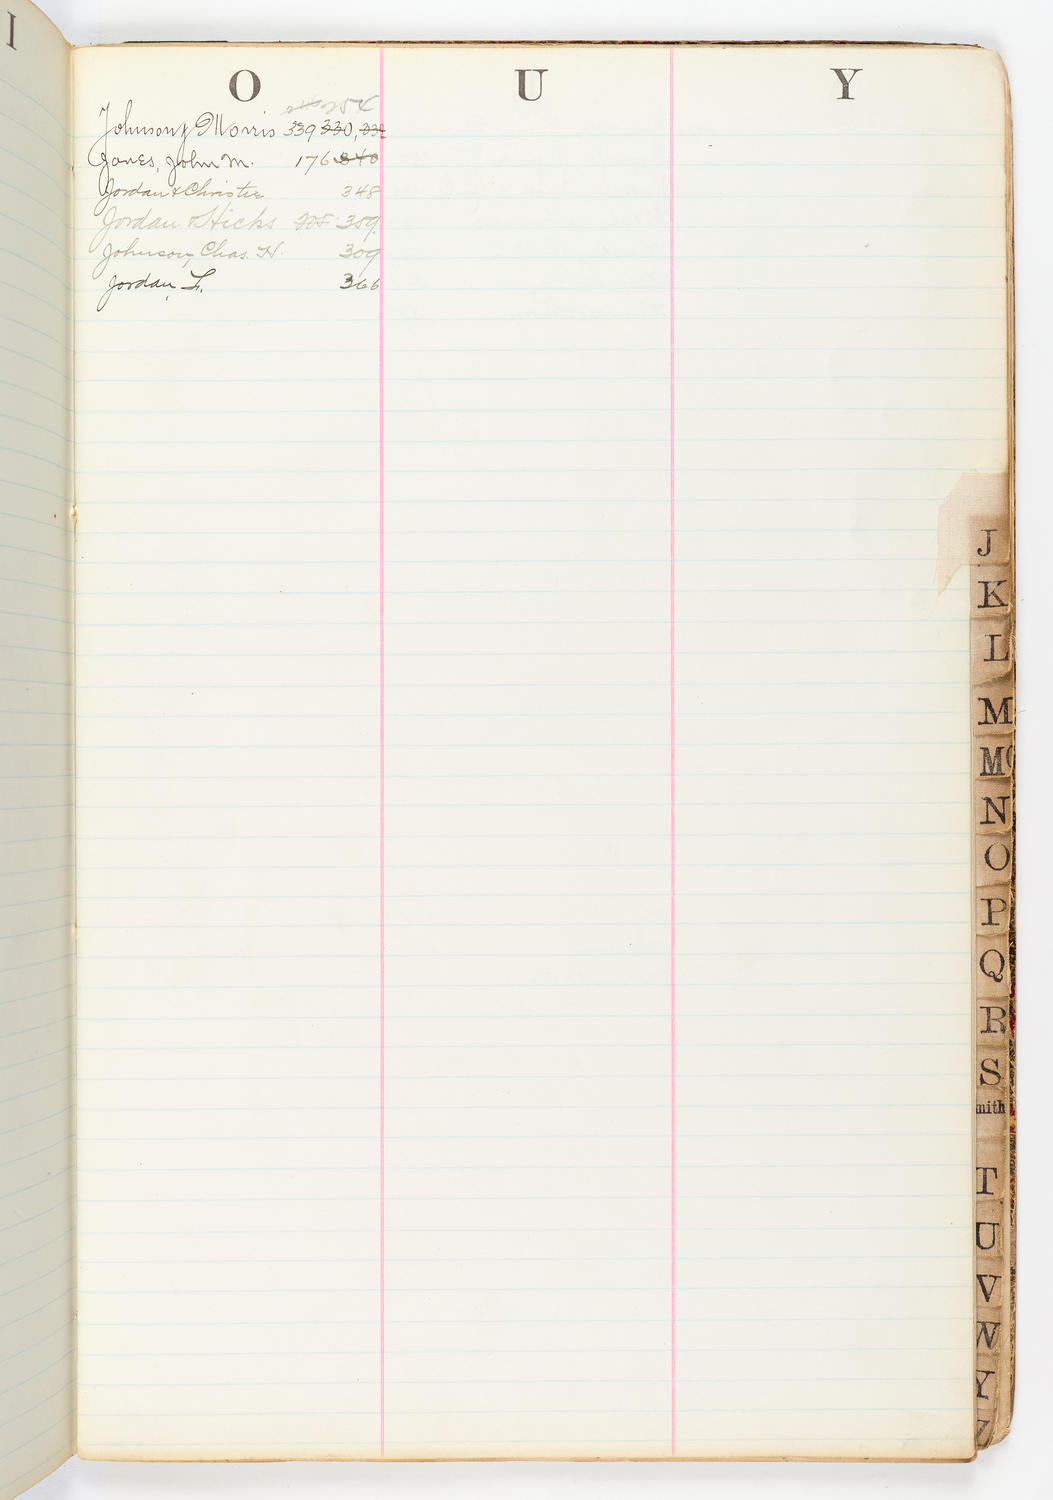 I
O U Y
Johnson, Morris 339 330, 332
Jones, John M. 176 340
Jordan & Christie 348
Jordan & Hicks 359
Johnson, Chas. H. 309
Jordan, L. 366
J
K
L
M
Mc
N
O
P
Q
R
S
mith
T
U
V
W
Y
Z